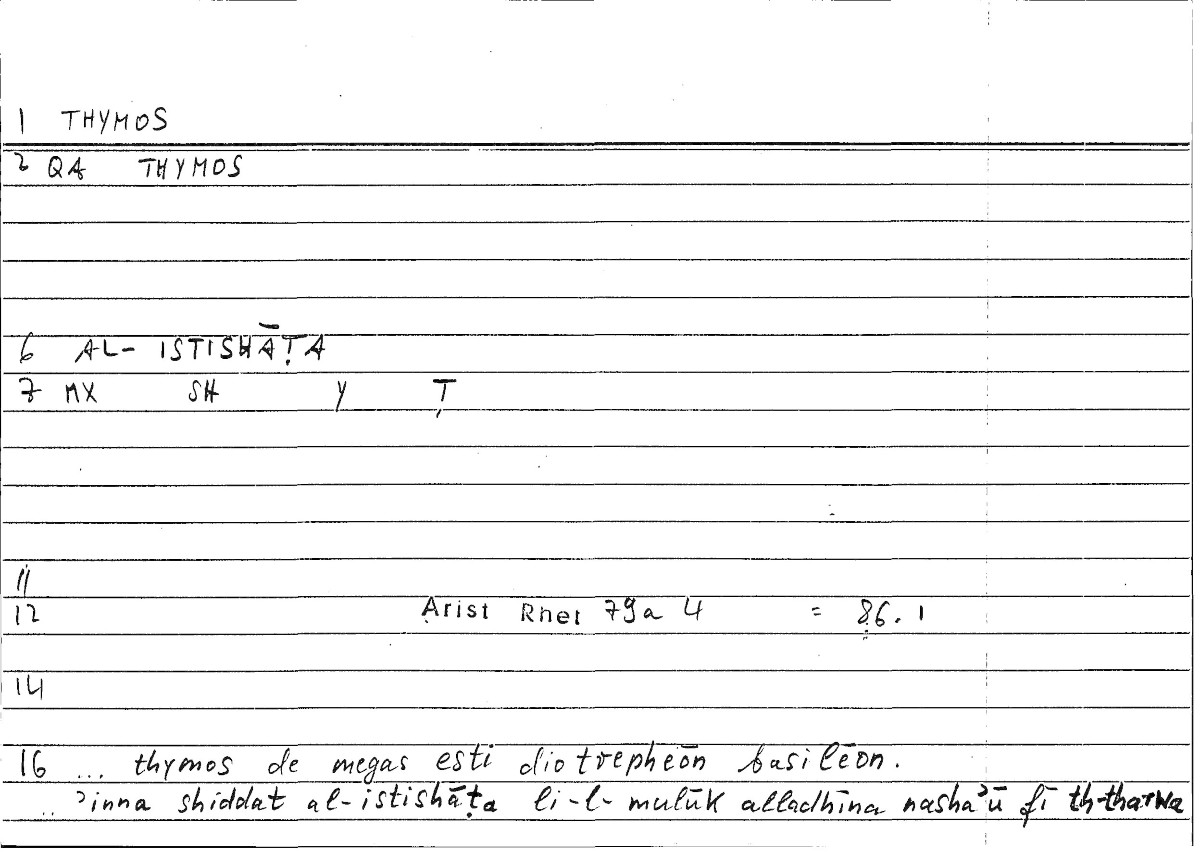 1 THYMOS
2 QA THYMOS
6 AL-ISTISHĀṬA
7 MX SH Y Ṭ
11
12 Arist Rhet 79a 4 = 86.1
14
16 ... thymos de megas esti diotrepheōn basilēon.
... ʾinna shiddat al-istishāṭa li-l-mulūk alladhīna nashaʾū fī th-tharwa